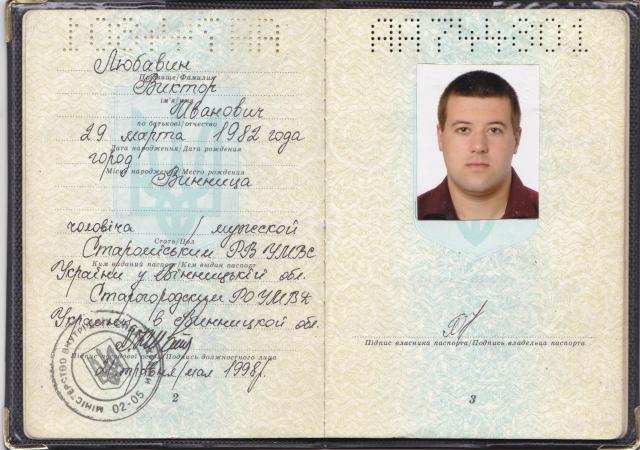 АА744801
Любавин
Прізвище/Фамилия
Виктор
ім'я/имя
Иванович
по батькові/отчество
29 марта 1982 года
Дата народження/Дата рождения
город
Місце народження/Место рождения
Винница
чоловіча / мужской
Стать/Пол
РВ УМВС
Ким виданий паспорт/Кем выдан паспорт
України у Вінницькій обл.
Старогородским РО УМВД
Украины в Винницкой обл.
Підпис посадової особи/Подпись должностного лица
травня/мая 1998р.
МІНІСТЕРСТВО ВНУТРІШНІХ
02-05
2
Підпис власника паспорта/Подпись владельца паспорта
3